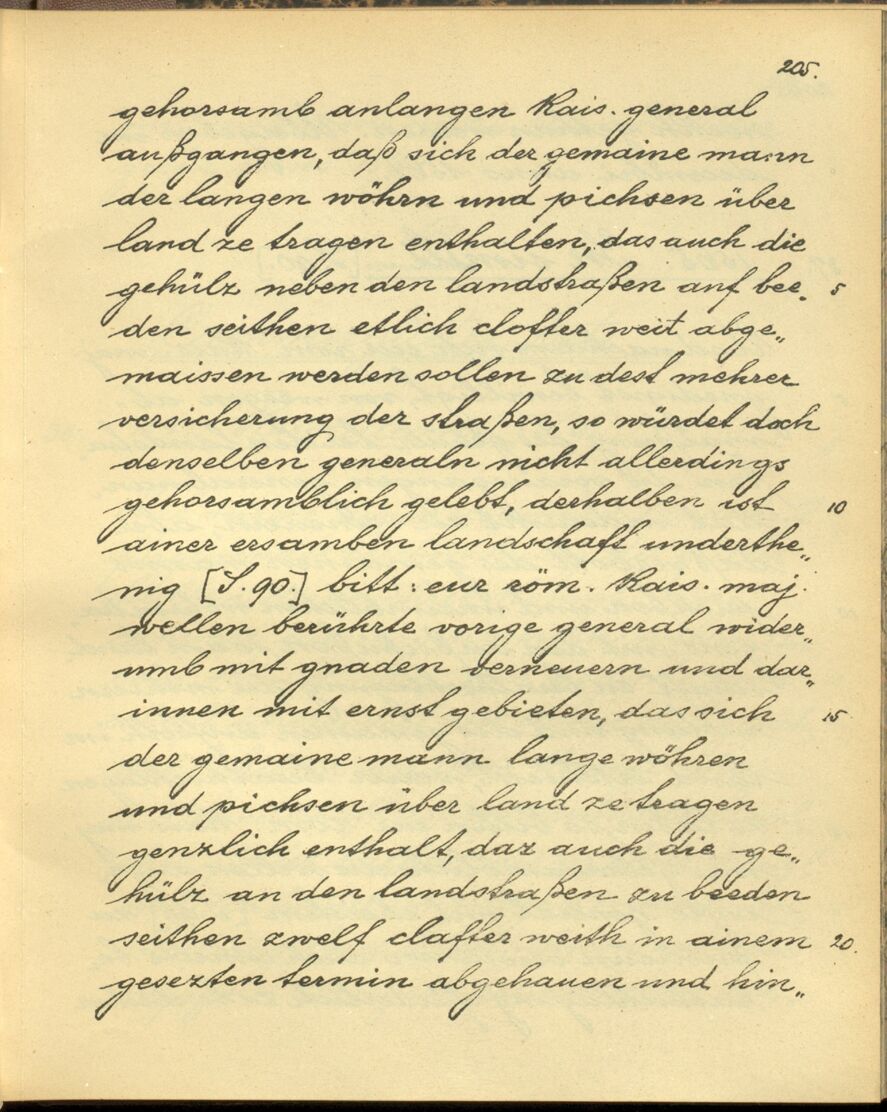 205.
gehorsamb anlangen Kais. general
außgangen, daß sich der gemaine mann
der langen wöhrn und pichsen über
land ze tragen enthalten, das auch die
gehülz neben den landstraßen auf bee„ 5
den seithen etlich cloffter weit abge„
maissen werden sollen zu dest mehrer
versicherung der straßen, so würdet doch
denselben generaln nicht allerdings
gehorsamblich gelebt, derhalben ist 10
ainer ersamben landschaft underthe„
nig [S. 90.] bitt: eur röm. Kais. maj.
wellen berührte vorige general wider„
umb mit gnaden verneuern und dar„
innen mit ernst gebieten, das sich 15
der gemaine mann lange wöhren
und pichsen über land ze tragen
genzlich enthalt, daz auch die ge„
hülz an den landstraßen zu beeden
seithen zwelf claffter weith in ainem 20.
gesezten termin abgehauen und hin„